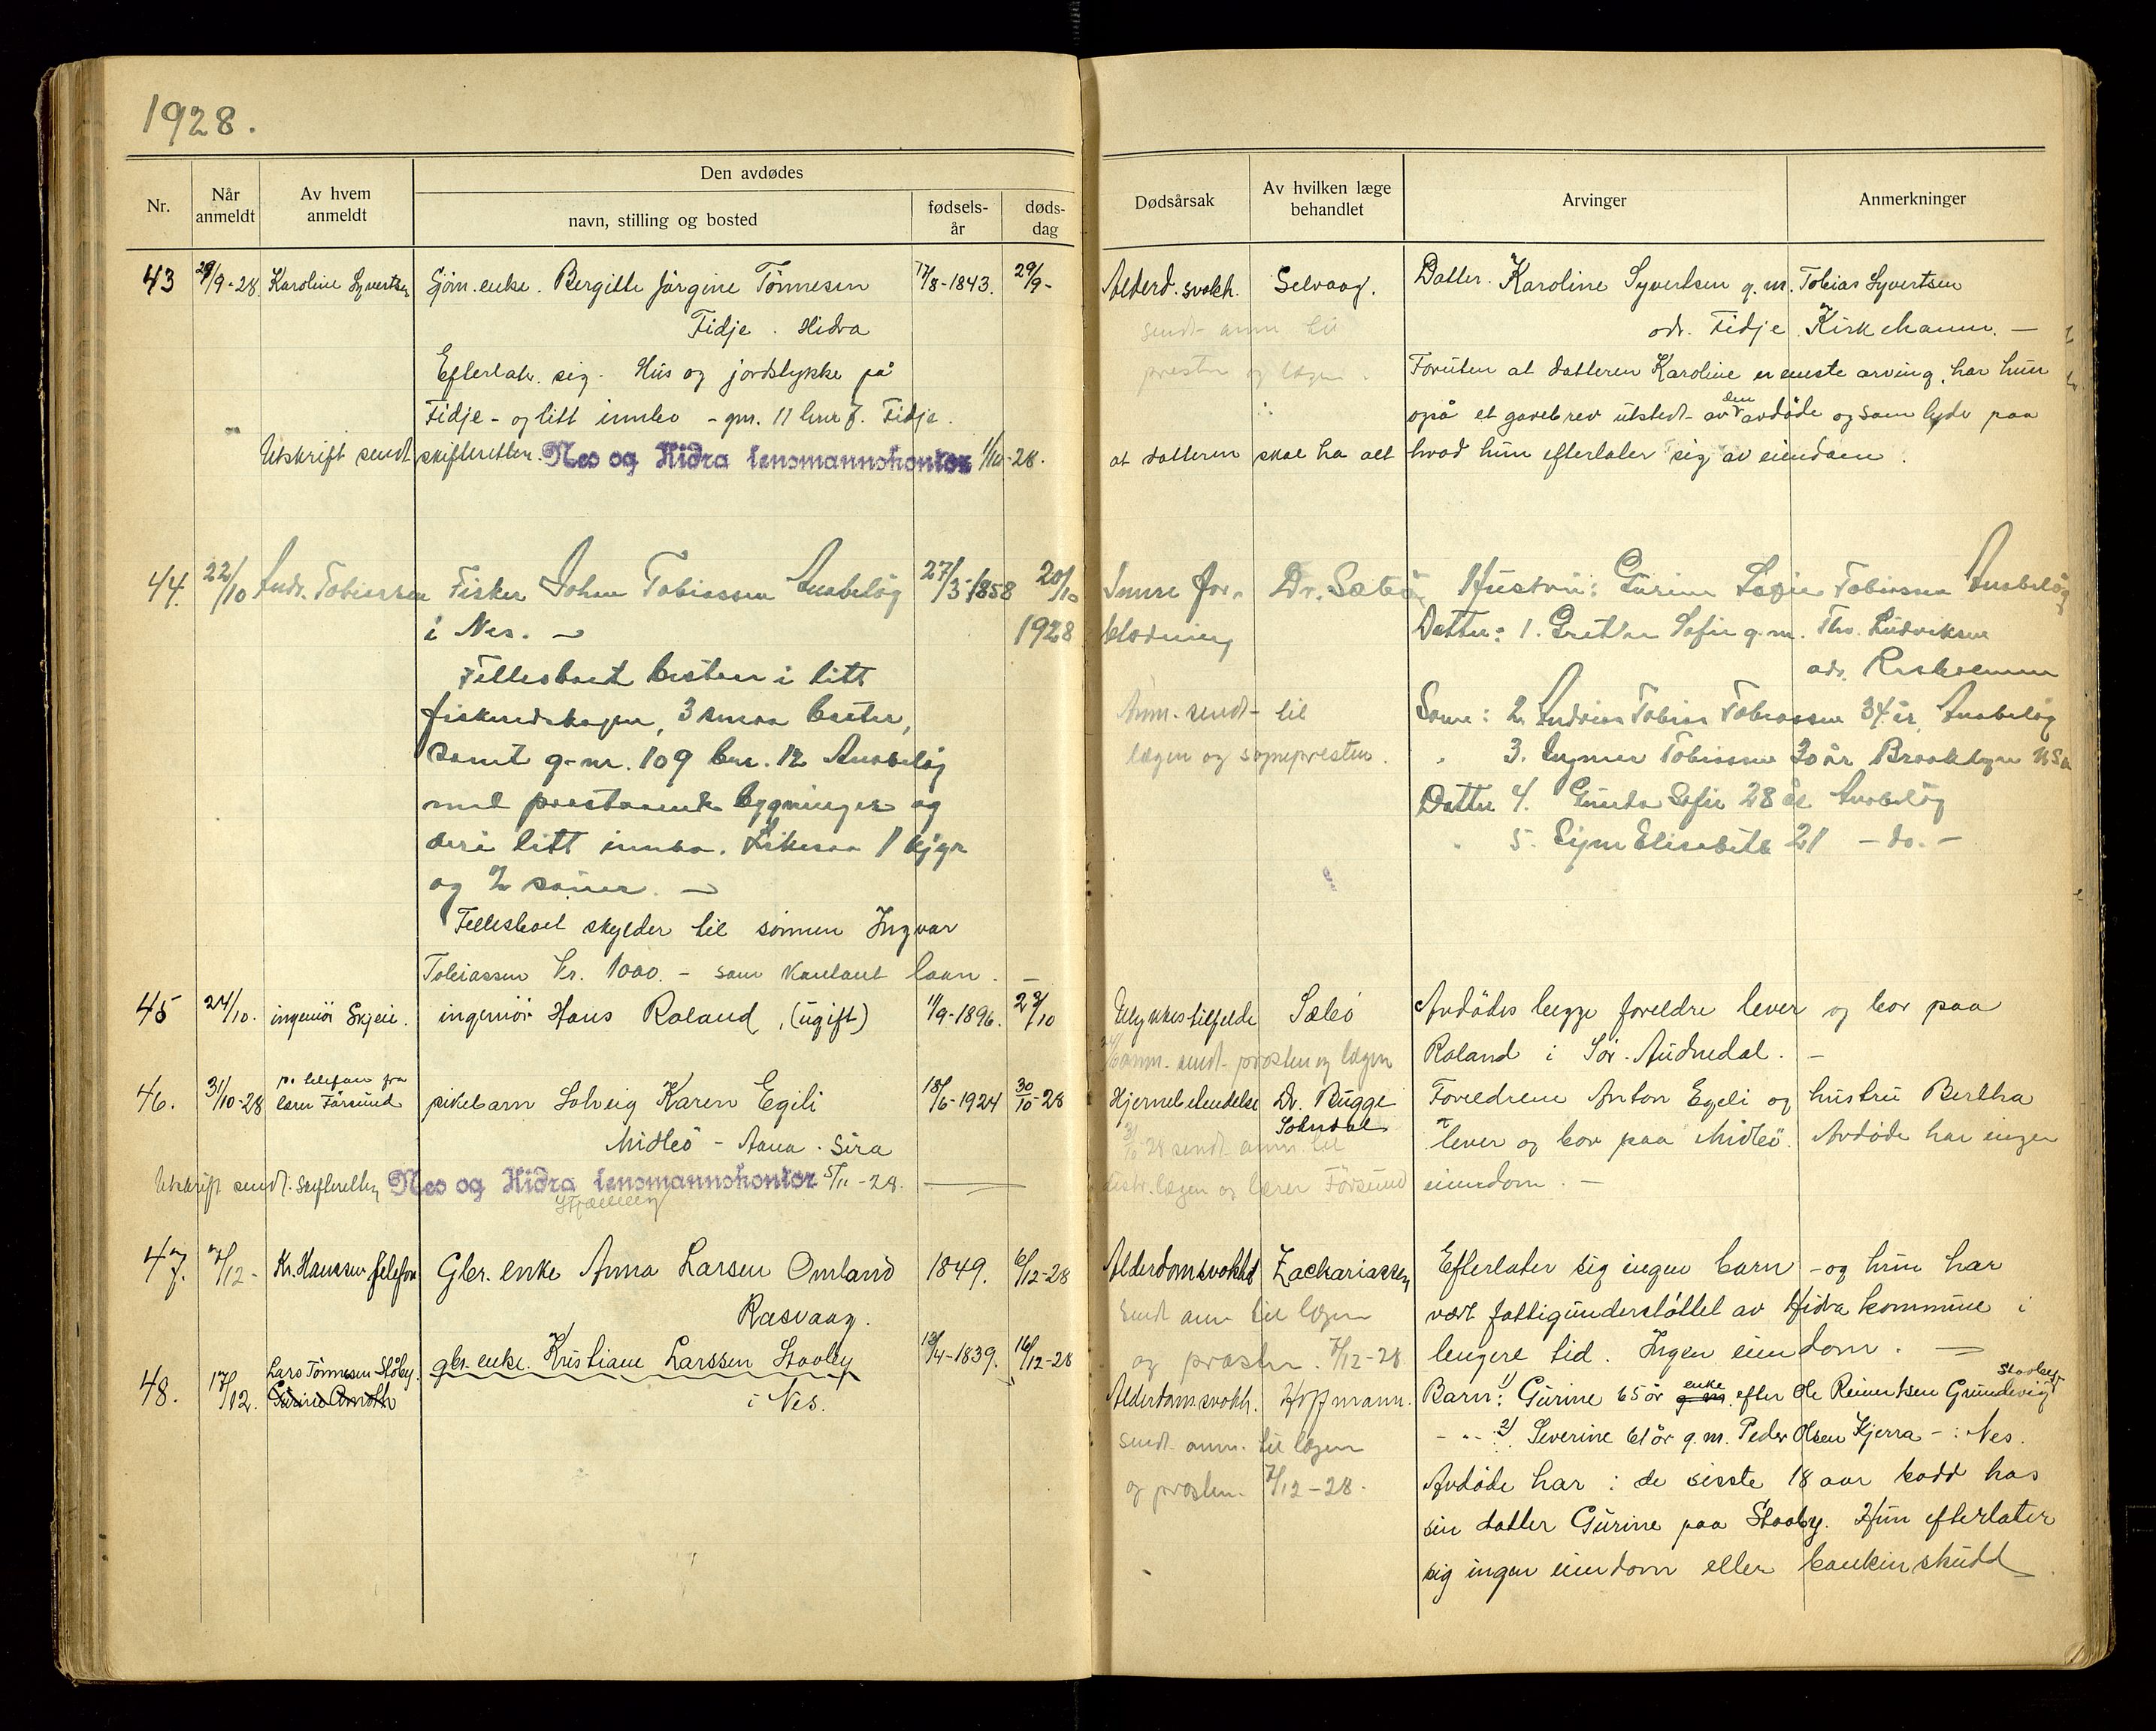 1928.
Nr.
Når anmeldt
Av hvem anmeldt
Den avdødes
navn, stilling og bosted
fødsels-år
døds-dag
Dødsårsak
Av hvilken læge behandlet
Arvinger
Anmerkninger
43 29/9-28. Karoline Syvertsen Sjøm. enke. Bergitte Jørgine Tønnesen 17/8-1843. 29/9- Alderd. svakh. Selvaag. Datter. Karoline Syvertsen g.m. Tobias Syvertsen
Fidje. Hidra sendt anm til adr. Fidje Kirkehamn. —
Efterlater sig. Hus og jordstykke på presten og lægen. Foruten at datteren Karoline er eneste arving, har hun
Fidje - og litt innbo - gnr. 11 bnr 7. Fidje. også et gavebrev utstedt av den avdøde og som lyde paa
Utskrift sendt skifteretten. Nes og Hidra lensmannskontor 1/10-28. at datteren skal ha alt hvad hun efterlater sig av eiendom.
44. 22/10 Andr. Tobiassen Fisker Johan Tobiassen Anabeløg 27/3-1858 20/10 Dr. Sæbø Hustru: Gurine Sofie Tobiassen Anabeløg
i Nes. — 1928 blødning Datter: 1. Sofie g.m. Th. Ludviksen
Fellesboet består i litt adr.
fiskeredskaper, 3 smaa baater, Anm. sendt til Sønn: 2. Andreas Tobias Tobiassen 34 år, Anabeløg
samt g-nr. 109 bnr. 12 Anabeløg lægen og sognepresten. 3. Tobiassen 30 år Brooklyn USA
med paastaaende bygninger og Datter 4. Gunda Sofie 28 år Anabeløg
deri litt innbo. Likesaa 1 kjyr 5. Elisabeth 21 - do. -
og 2 sauer. —
Fellesboet skylder til sønnen Ingvar
Tobiassen kr. 1000. - som kontant laan. —
45 24/10. ingeniør Skjeie. ingeniør Hans Roland, (ugift) 11/9-1896. 23/10 Ulykkestilfelde Sæbø Avdødes begge foreldre lever og bor paa
anm. sendt presten og lægen Roland i Sør-Audnedal. —
46. 31/10-28 p. telefon fra lærer Førsund pikebarn Solveig Karen Egeli 18/6-1924 30/10-28 Hjernebetendelse Dr. Bugge Sokndal Foreldrene Anton Egeli og hustru Bertha
Midtbø - Aana-Sira 31/10-28 sendt anm. til lever og bor paa Midtbø. Avdøde har ingen
Utskrift sendt skifteretten Nes og Hidra lensmannskontor 5/11-28. distr. lægen og lærer Førsund eiendom. —
47. 7/12- Kr. Hanssen telefon Gbr. enke Anna Larsen Omland 1849. 6/12-28 Alderdomsvakhet Zachariassen Efterlater sig ingen barn - og hun har
Rasvaag. sendt anm til lægen vært fattigunderstøttet av Hidra kommune i
og presten. 7/12-28 lengere tid. Ingen eiendom. —
48. 17/12. Lars Tønnesen Støby. gbr. enke. Kristiane Larssen Stooby 12/4-1839. 16/12-28 Alderdoms.svakh. Hoffmann. Barn: 1) Gurine 65 år enke efter Ole Reinertsen Grundevig Stooby
i Nes. sendt anm. til lægen - " - 2) Severine 61 år g.m. Peder Olsen Kjerra - i Nes.
og presten. 7/12-28. Avdøde har i de siste 18 aar bodd hos
sin datter Gurine paa Stooby. Hun efterlater
sig ingen eiendom eller bankinskudd